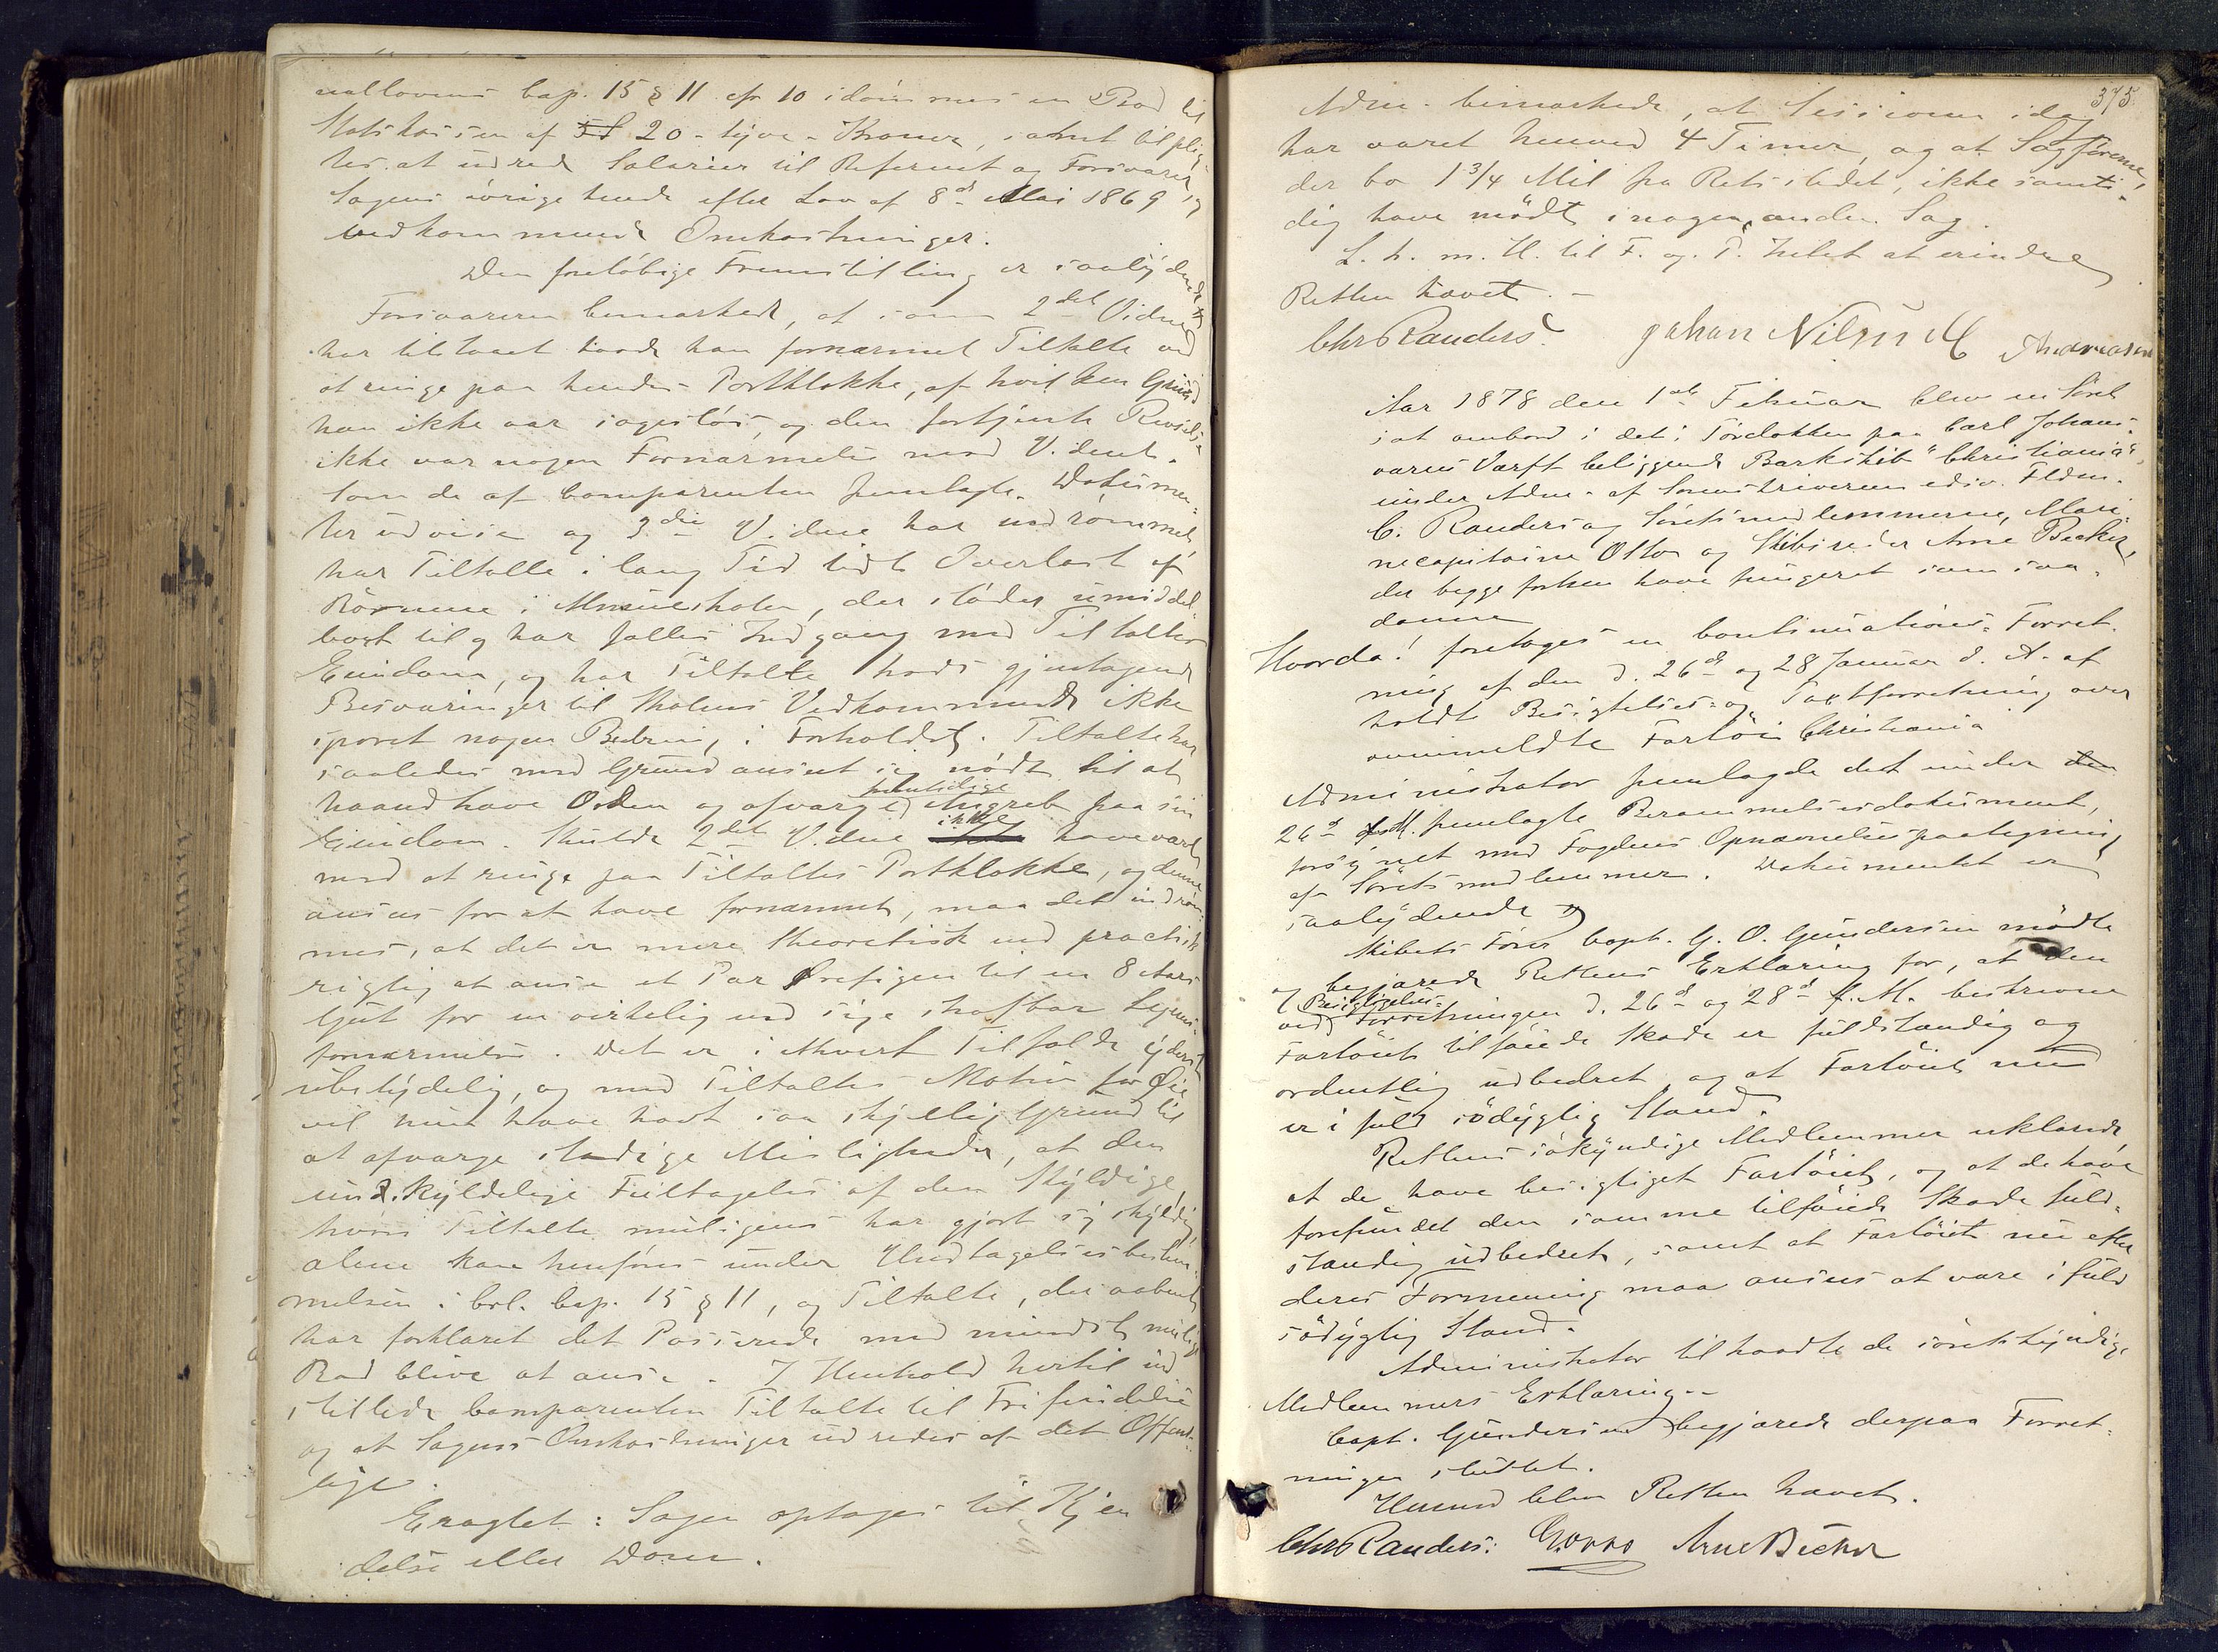 nallovens Cap. 15 § 11 cfr 10 idømmes en Bod til
Statskassen af 20 - tyve - Kroner, samt tilplig-
tes at udrede Salarier til Referent og Forsvarer, og
Sagens øvrige hende efter Lov af 8de Mai 1869
vedkommende Omkostninger.
Den foreløbige Fremstilling er saalydende
Forsvareren bemærkede, at som 2det Vidne
har tilstaaet havde han fornærmet Tiltalte ved
at ringe paa hendes Portklokke, af hvilken Grund
han ikke var sagesløs, og den fortjente Revselse
ikke var nogen Fornærmelse mod Vidnet.
Som de af Comparenten fremlagte Dokumen-
ter udvise og 3die Vidne har indrømmet,
har Tiltalte i lang Tid lidt Overlast af
Børnene i Almueskolen, der støder umiddel-
bart til og har fælles Indgang med Tiltaltes
Eiendom, og har Tiltalte trods gjentagende
Besværinger til Skolens Vedkommende ikke
sporet nogen Bedring i Forholdet. Tiltalte har
saaledes med Grund anseet sig nødt til at
haandhæve Orden og afværge fremtidige Angreb paa sin
Eiendom. Skulde 2det Vidne ikke have været
med at ringe paa Tiltaltes Portklokke, og denne
ansees for at have fornærmet, maa det indrøm-
mes, at det er mere theoretisk end practisk
rigtig at anse et Par Ørefigen til en 8 Aars
Gut for en virkelig end sige strafbar Legems-
fornærmelse. Det er i ethvert Tilfælde yderst
ubetydelig, og med Tiltaltes Motiv for Øie
vil man have havt saa skjellig Grund til
at afværge stadige Misligheder, at den
undskyldelige Feiltagelse af den Skyldige
hvori Tiltalte muligens har gjort sig skyldig,
alene kan henføres under Undtagelsesbestem-
melsen i Crl. Cap. 15 § 11, og Tiltalte, der aabent
har forklaret det Passerede med mindst mulige
Bod blive at anse. I Henhold hertil ind
stillede Comparenten Tiltalte til Frifindelse
og at Sagens Omkostninger udredes af det Offent-
lige.
Eragtet: Sagen optages til Kjen
delse eller Dom.
375
Adm. bemærkede, at Sessionen idag
har varet henved 4 Timer, og at Sagførerne,
der bo 1 3/4 Mil fra Retsstedet, ikke samti-
dig have mødt i nogen anden Sag.
L. h. m. H. til F. og T. Intet at erindre
Retten hævet. -
Chr Randers. Johan Nilsen M Andreasen
Aar 1878 den 1ste Februar blev en Søret
sat ombord i det i Tørdokken paa Carl Johans-
værns Værft beliggende Barkskib "Christiania"
under Adm. af Sorenskriveren ediv. Fldm.
C. Randers og Søretsmedlemmerne, Mari-
necapitaine Otto og Skibsreder Arne Becker,
der begge forhen have fungeret som saa-
danne
Hvorda! foretoges en Continuations-Forret-
ning af den d. 26de og 28 Januar d. A. af
holdt Besigtelses- og Taxtforretning over
ommeldte Fartøi Christiania
Administrator fremlagde det under den
26de f. M. fremlagte Berammelsesdokument,
forsynet med Fogdens Opnævnelsespaategning
af Søretsmedlemmer. Dokumentet er
saalydende
Skibets Fører Capt. G. O. Gundersen mødte
og begjærede Rettens Erklæring for, at den
ved Besigtigelses-Forretningen d. 26de og 28de f. M. beskrevne
Fartøiet tilføiede Skade er fuldstændig og
ordentlig udbedret og at Fartøiet nu
er i fuld sødygtig Stand.
Rettens søkyndige Medlemmer erklærede,
at de have besigtiget Fartøiet, og at de have
forefundet den samme tilføiede Skade fuld-
stændig udbedret, samt at Fartøiet nu efter
deres Formening maa ansees at være i fuld
sødygtig Stand.
Administrator tilraadte de søretskyndige
Medlemmers Erklæring. -
Capt. Gundersen begjærede derpaa Forret-
ningen sluttet.
Hermed blev Retten hævet.
Chr Randers. Arne Becker